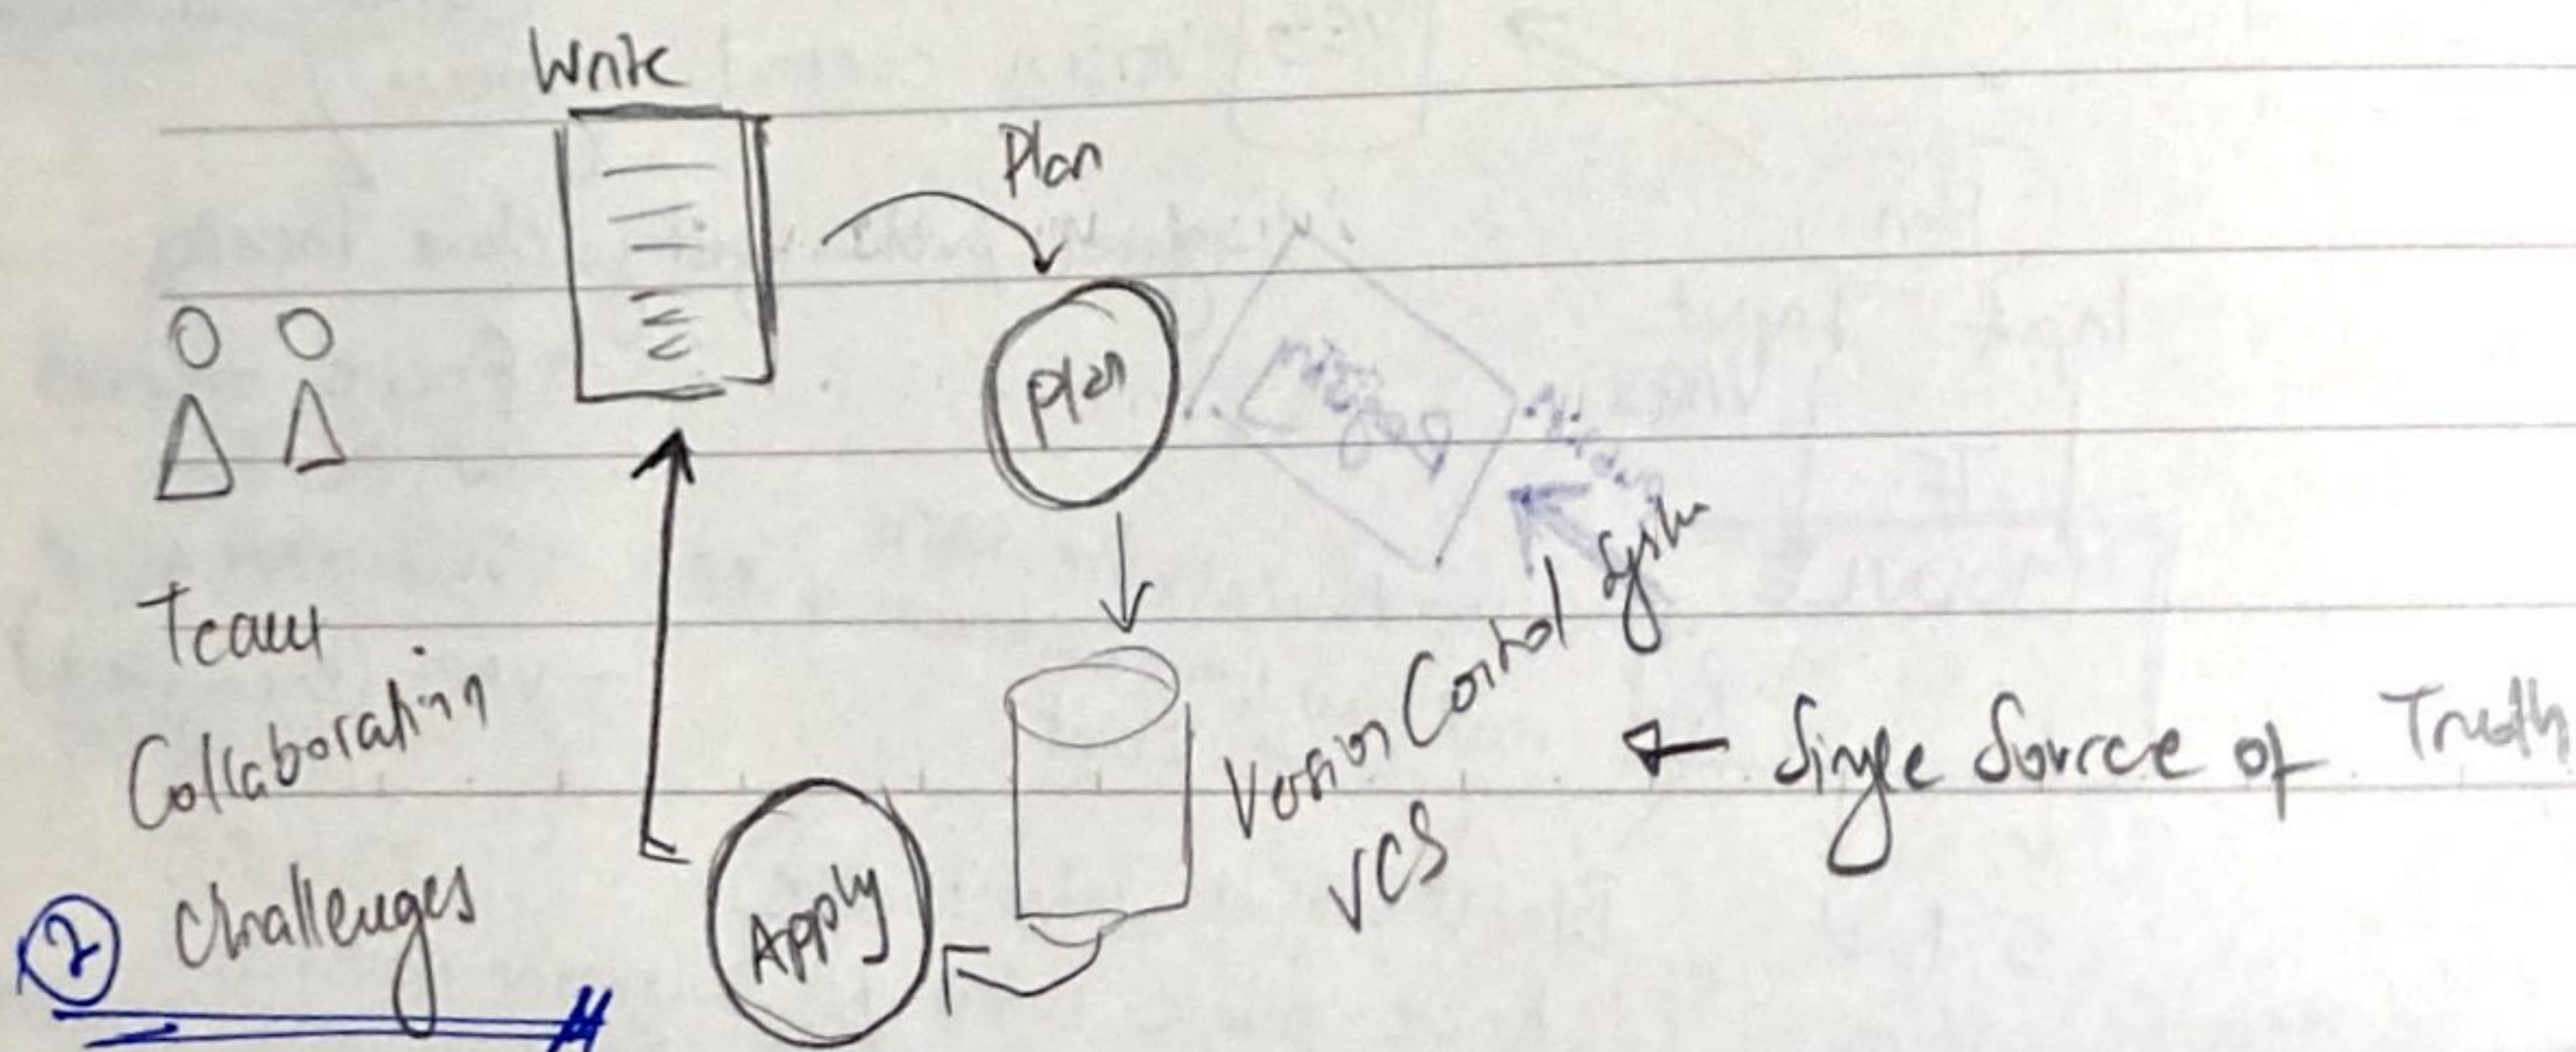 Write
Plan
Plan
Team
Collaboration
Challenges
2
Version Control System
VCS
Single Source of Truth
Apply